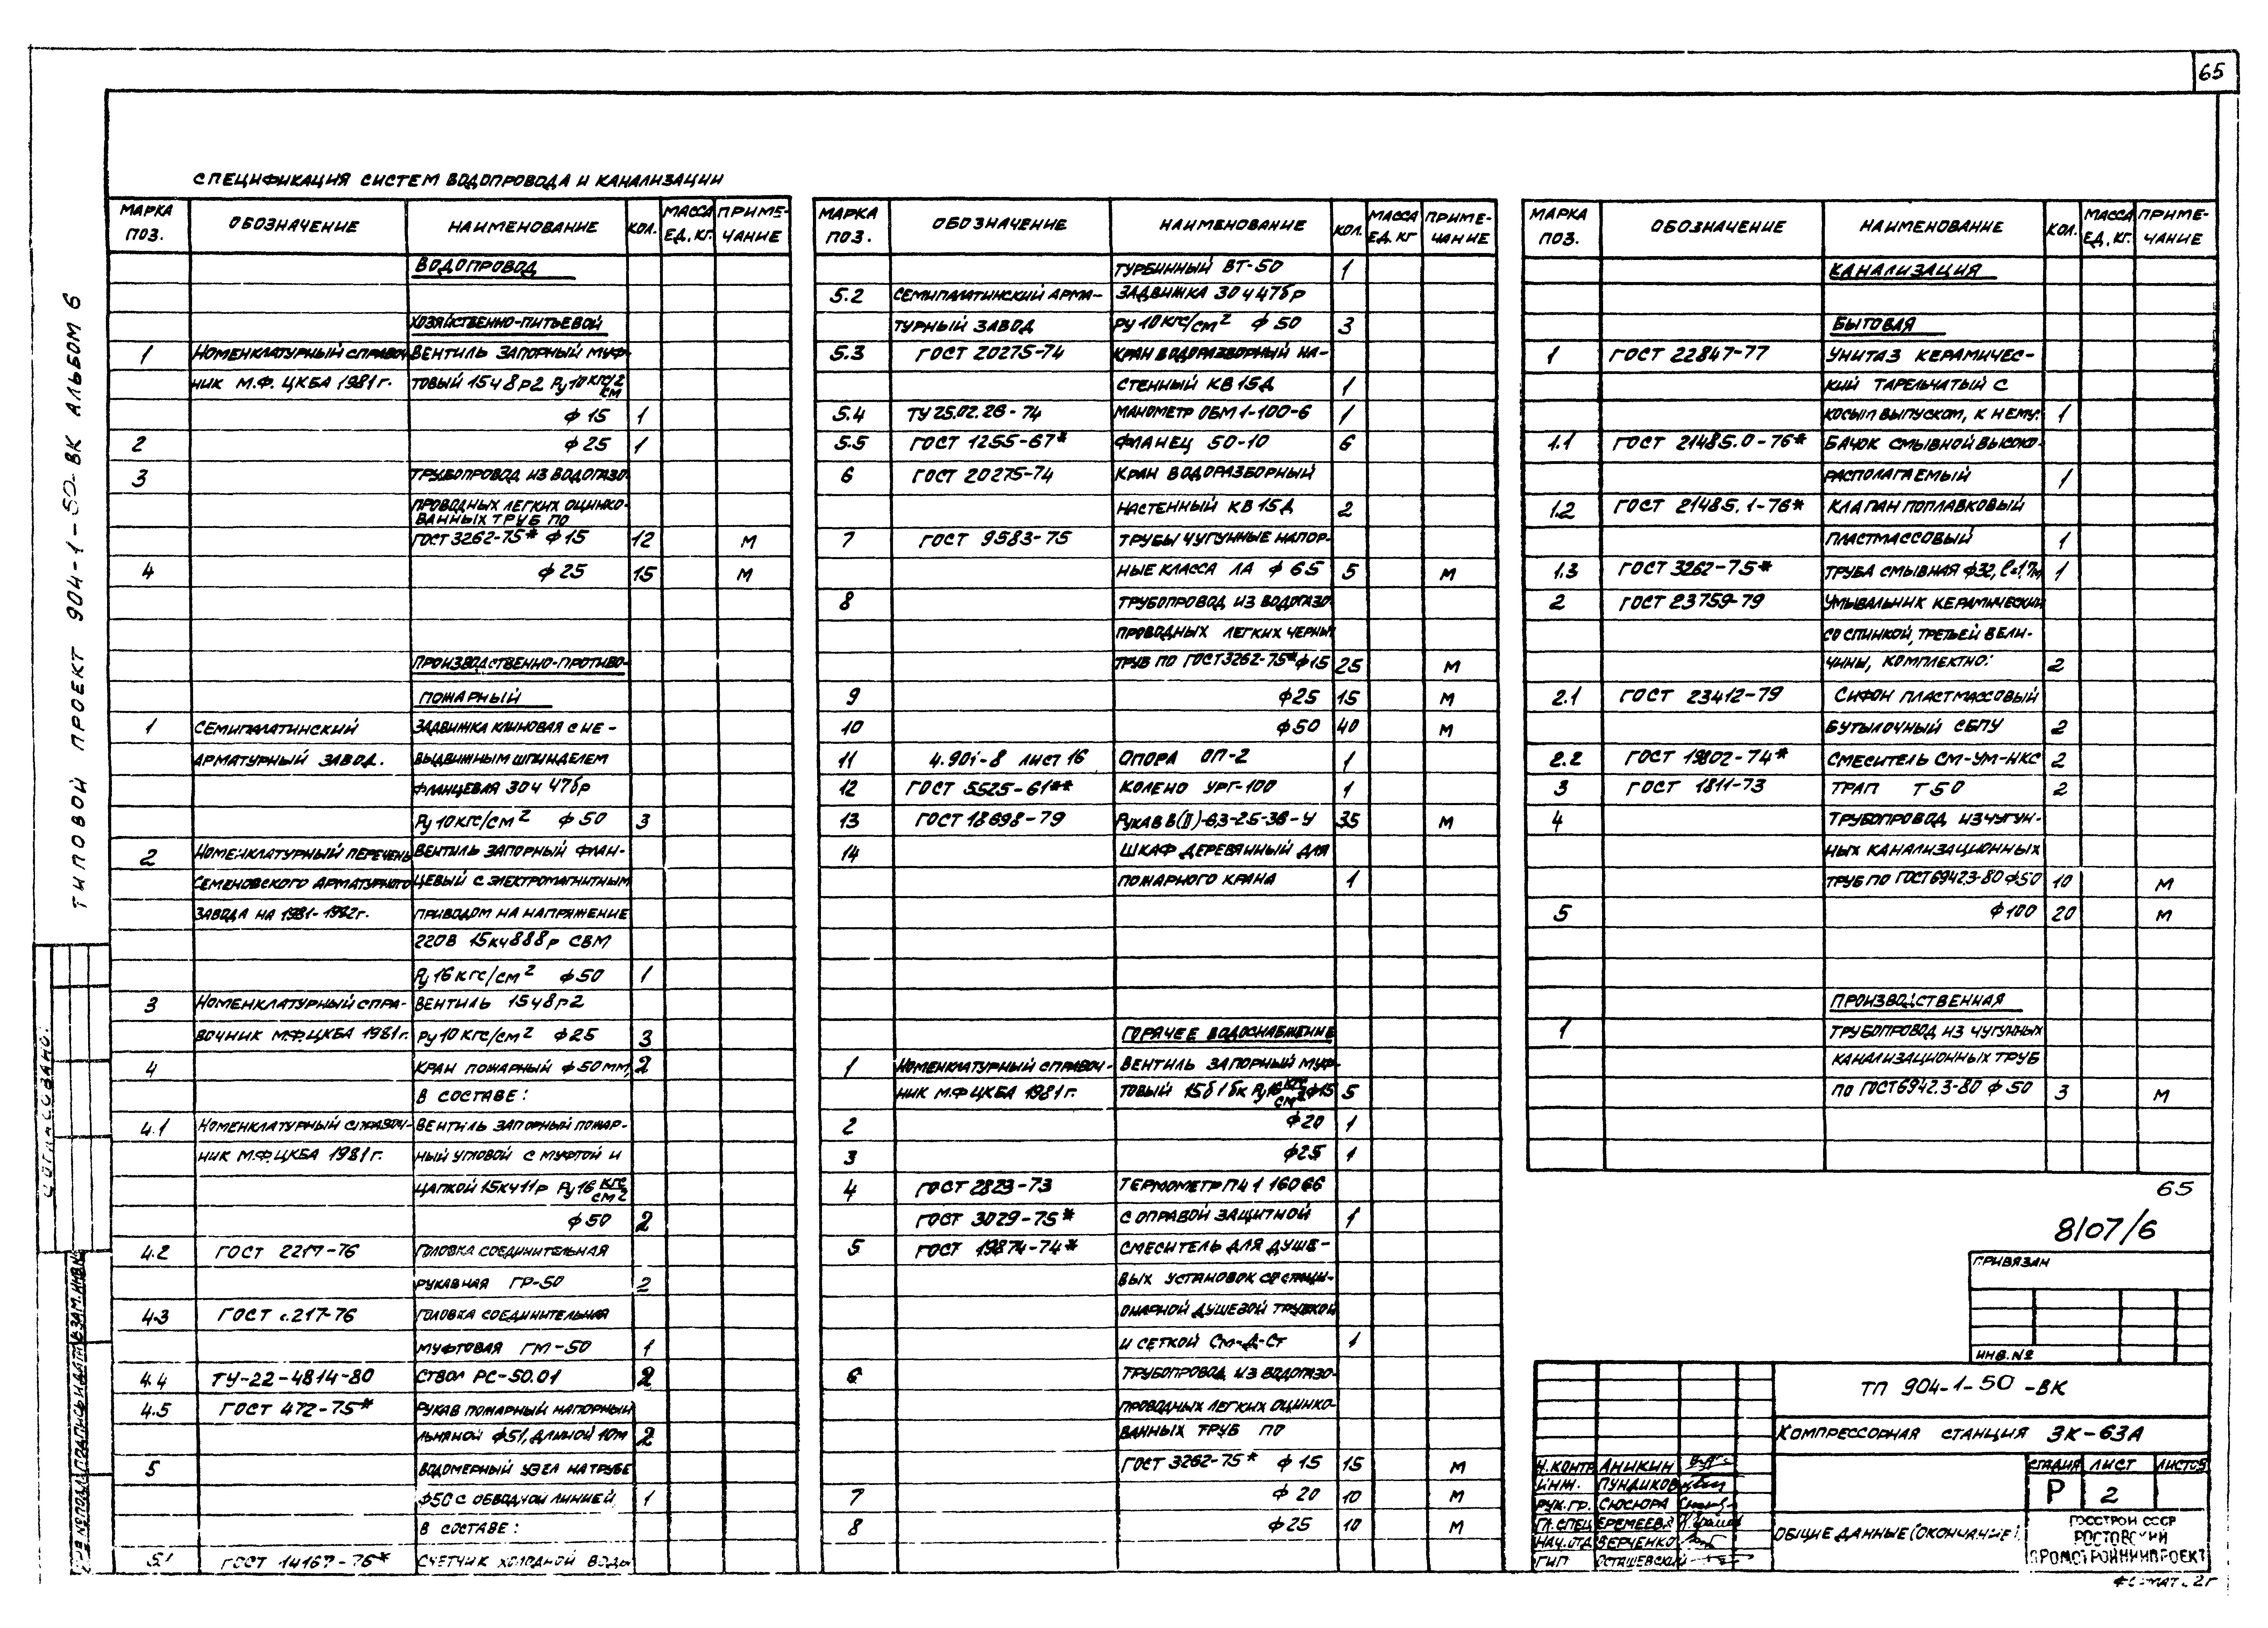 65
СПЕЦИФИКАЦИЯ СИСТЕМ ВОДОПРОВОДА И КАНАЛИЗАЦИИ
МАРКА ПОЗ. ОБОЗНАЧЕНИЕ НАИМЕНОВАНИЕ КОЛ. МАССА ЕД. КГ. ПРИМЕ- ЧАНИЕ
ВОДОПРОВОД
ХОЗЯЙСТВЕННО-ПИТЬЕВОЙ
1 НОМЕНКЛАТУРНЫЙ СПРАВОЧ- ВЕНТИЛЬ ЗАПОРНЫЙ МУФ-
НИК М.Ф. ЦКБА 1981г. ТОВЫЙ 15ч8р2 Ру10 кгс/см2
ф15 1
2 ф25 1
3 ТРУБОПРОВОД ИЗ ВОДОГАЗО-
ПРОВОДНЫХ ЛЕГКИХ ОЦИНКО-
ВАННЫХ ТРУБ ПО
ГОСТ 3262-75* ф15 12 М
4 ф25 15 М
ПРОИЗВОДСТВЕННО-ПРОТИВО-
ПОЖАРНЫЙ
1 СЕМИПАЛАТИНСКИЙ ЗАДВИЖКА КЛИНОВАЯ С НЕ-
АРМАТУРНЫЙ ЗАВОД. ВЫДВИЖНЫМ ШПИНДЕЛЕМ
ФЛАНЦЕВАЯ 30ч47бр
Ру10 кгс/см2 ф50 3
2 НОМЕНКЛАТУРНЫЙ ПЕРЕЧЕНЬ ВЕНТИЛЬ ЗАПОРНЫЙ ФЛАН-
СЕМЕНОВСКОГО АРМАТУРНОГО ЦЕВЫЙ С ЭЛЕКТРОМАГНИТНЫМ
ЗАВОДА НА 1981-1982г. ПРИВОДОМ НА НАПРЯЖЕНИЕ
220В 15кч888р СВМ
Ру16 кгс/см2 ф50 1
3 НОМЕНКЛАТУРНЫЙ СПРА- ВЕНТИЛЬ 15ч8р2
ВОЧНИК М.Ф. ЦКБА 1981г. Ру10 кгс/см2 ф25 3
4 КРАН ПОЖАРНЫЙ ф50мм, 2
В СОСТАВЕ:
4.1 НОМЕНКЛАТУРНЫЙ СПРАВОЧ- ВЕНТИЛЬ ЗАПОРНЫЙ ПОЖАР-
НИК М.Ф. ЦКБА 1981г. НЫЙ УГЛОВОЙ С МУФТОЙ И
ЦАПКОЙ 15кч11р Ру16 кгс/см2
ф50 2
4.2 ГОСТ 2217-76 ГОЛОВКА СОЕДИНИТЕЛЬНАЯ
РУКАВНАЯ ГР-50 2
4.3 ГОСТ 2217-76 ГОЛОВКА СОЕДИНИТЕЛЬНАЯ
МУФТОВАЯ ГМ-50 1
4.4 ТУ-22-4814-80 СТВОЛ РС-50.01 2
4.5 ГОСТ 472-75* РУКАВ ПОЖАРНЫЙ НАПОРНЫЙ
ЛЬНЯНОЙ ф51, ДЛИНОЙ 10м 2
5 ВОДОМЕРНЫЙ УЗЕЛ НА ТРУБЕ
ф50 С ОБВОДНОЙ ЛИНИЕЙ, 1
В СОСТАВЕ:
5.1 ГОСТ 14167-76* СЧЕТЧИК ХОЛОДНОЙ ВОДЫ
МАРКА ПОЗ. ОБОЗНАЧЕНИЕ НАИМЕНОВАНИЕ КОЛ. МАССА ЕД. КГ ПРИМЕ- ЧАНИЕ
ТУРБИННЫЙ ВТ-50 1
5.2 СЕМИПАЛАТИНСКИЙ АРМА- ЗАДВИЖКА 30ч47бр
ТУРНЫЙ ЗАВОД Ру10кгс/см2 ф50 3
5.3 ГОСТ 20275-74 КРАН ВОДОРАЗБОРНЫЙ НА-
СТЕННЫЙ КВ15Д 1
5.4 ТУ 25.02.26-74 МАНОМЕТР ОБМ1-100-6 1
5.5 ГОСТ 1255-67* ФЛАНЕЦ 50-10 6
6 ГОСТ 20275-74 КРАН ВОДОРАЗБОРНЫЙ
НАСТЕННЫЙ КВ15Д 2
7 ГОСТ 9583-75 ТРУБЫ ЧУГУННЫЕ НАПОР-
НЫЕ КЛАССА ЛА ф65 5 М
8 ТРУБОПРОВОД ИЗ ВОДОГАЗО-
ПРОВОДНЫХ ЛЕГКИХ ЧЕРНЫХ
ТРУБ ПО ГОСТ 3262-75* ф15 25 М
9 ф25 15 М
10 ф50 40 М
11 4.901-8 ЛИСТ 16 ОПОРА ОП-2 1
12 ГОСТ 5525-61** КОЛЕНО УРГ-100 1
13 ГОСТ 18698-79 РУКАВ В(II)-6,3-25-38-У 35 М
14 ШКАФ ДЕРЕВЯННЫЙ ДЛЯ
ПОЖАРНОГО КРАНА 1
ГОРЯЧЕЕ ВОДОСНАБЖЕНИЕ
1 НОМЕНКЛАТУРНЫЙ СПРАВОЧ- ВЕНТИЛЬ ЗАПОРНЫЙ МУФ-
НИК М.Ф. ЦКБА 1981г. ТОВЫЙ 15б1бк Ру16 кгс/см2 ф15 5
2 ф20 1
3 ф25 1
4 ГОСТ 2823-73 ТЕРМОМЕТР П4 1 160 66
ГОСТ 3029-75* С ОПРАВОЙ ЗАЩИТНОЙ 1
5 ГОСТ 19874-74* СМЕСИТЕЛЬ ДЛЯ ДУШЕ-
ВЫХ УСТАНОВОК СО СТАЦИ-
ОНАРНОЙ ДУШЕВОЙ ТРУБКОЙ
И СЕТКОЙ См-Д-Ст 1
6 ТРУБОПРОВОД ИЗ ВОДОГАЗО-
ПРОВОДНЫХ ЛЕГКИХ ОЦИНКО-
ВАННЫХ ТРУБ ПО
ГОСТ 3262-75* ф15 15 М
7 ф20 10 М
8 ф25 10 М
МАРКА ПОЗ. ОБОЗНАЧЕНИЕ НАИМЕНОВАНИЕ КОЛ. МАССА ЕД. КГ. ПРИМЕ- ЧАНИЕ
КАНАЛИЗАЦИЯ
БЫТОВАЯ
1 ГОСТ 22847-77 УНИТАЗ КЕРАМИЧЕС-
КИЙ ТАРЕЛЬЧАТЫЙ С
КОСЫМ ВЫПУСКОМ, К НЕМУ: 1
1.1 ГОСТ 21485.0-76* БАЧОК СМЫВНОЙ ВЫСОКО-
РАСПОЛАГАЕМЫЙ 1
1.2 ГОСТ 21485.1-76* КЛАПАН ПОПЛАВКОВЫЙ
ПЛАСТМАССОВЫЙ 1
1.3 ГОСТ 3262-75* ТРУБА СМЫВНАЯ ф32, l=1,7м 1
2 ГОСТ 23759-79 УМЫВАЛЬНИК КЕРАМИЧЕСКИЙ
СО СПИНКОЙ, ТРЕТЬЕЙ ВЕЛИ-
ЧИНЫ, КОМПЛЕКТНО: 2
2.1 ГОСТ 23412-79 СИФОН ПЛАСТМАССОВЫЙ
БУТЫЛОЧНЫЙ СБПУ 2
2.2 ГОСТ 19802-74* СМЕСИТЕЛЬ СМ-УМ-НКС 2
3 ГОСТ 1811-73 ТРАП Т50 2
4 ТРУБОПРОВОД ИЗ ЧУГУН-
НЫХ КАНАЛИЗАЦИОННЫХ
ТРУБ ПО ГОСТ 6942.3-80 ф50 10 М
5 ф100 20 М
ПРОИЗВОДСТВЕННАЯ
1 ТРУБОПРОВОД ИЗ ЧУГУННЫХ
КАНАЛИЗАЦИОННЫХ ТРУБ
ПО ГОСТ 6942.3-80 ф50 3 М
65
8107/6
ПРИВЯЗАН
ИНВ.№
ТП 904-1-50-ВК
КОМПРЕССОРНАЯ СТАНЦИЯ 3К-63А
Н.КОНТР АНИКИН
ИНЖ. ПУНДИКОВ
РУК.ГР. СЮСЮРА
ГЛ.СПЕЦ ЕРЕМЕЕВА
НАЧ.ОТД ВЕРЧЕНКО
ГИП ОСТАШЕВСКИЙ
СТАДИЯ ЛИСТ ЛИСТОВ
Р 2
ОБЩИЕ ДАННЫЕ (ОКОНЧАНИЕ)
ГОССТРОЙ СССР
РОСТОВСКИЙ
ПРОМСТРОЙНИИПРОЕКТ
ФОРМАТ 22Г
ТИПОВОЙ ПРОЕКТ 904-1-50-ВК АЛЬБОМ 6
СОГЛАСОВАНО:
ИНВ.№ПОДЛ. ПОДПИСЬ И ДАТА ВЗАМ.ИНВ.№